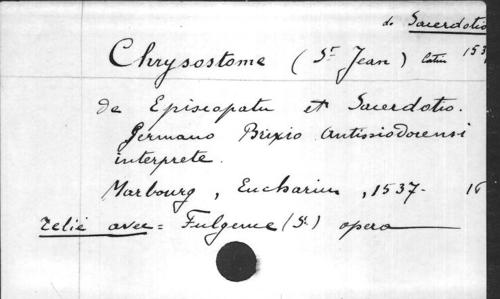 de Sacerdotio
Chrysostome (St Jean) latin 153
de Episcopatu et Sacerdotio.
Germano Brixio Antissiodorensi
interprete.
Marbourg, Eucharius, 1537- 16
relié avec = Fulgence (St) opera